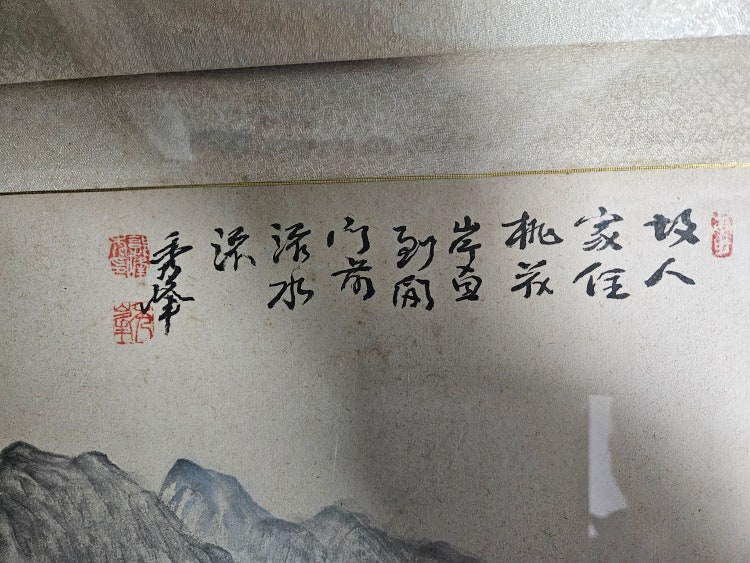 故人
家住
桃花
岸直
到
门前
溪水
流
秀峰